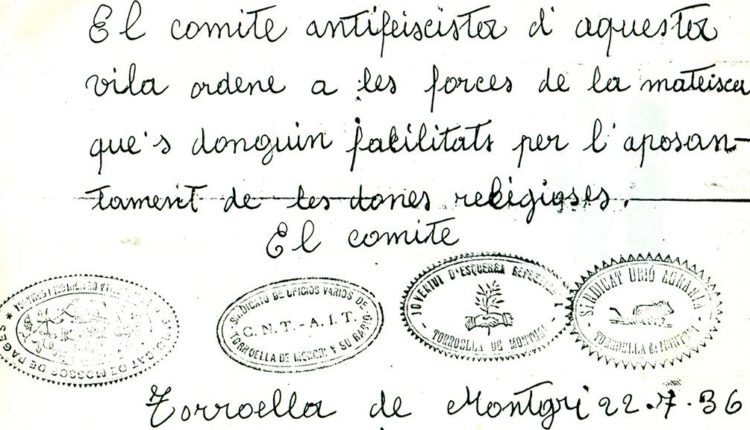 El comite antifeiscista d'aquesta
vila ordene a les forces de la mateisca
que's donguin facilitats per l'aposan-
tament de les dones religioses.
El comite
SINDICATO DE OFICIOS VARIOS DE
C.N.T.-A.I.T.
TORROELLA DE MONTGRI Y SU RADIO
JOVENTUT D'ESQUERRA REPUBLICANA
TORROELLA DE MONTGRI
SINDICAT UNIÓ AGRARIA
TORROELLA de MONTGRI
Torroella de Montgri 22.7.36